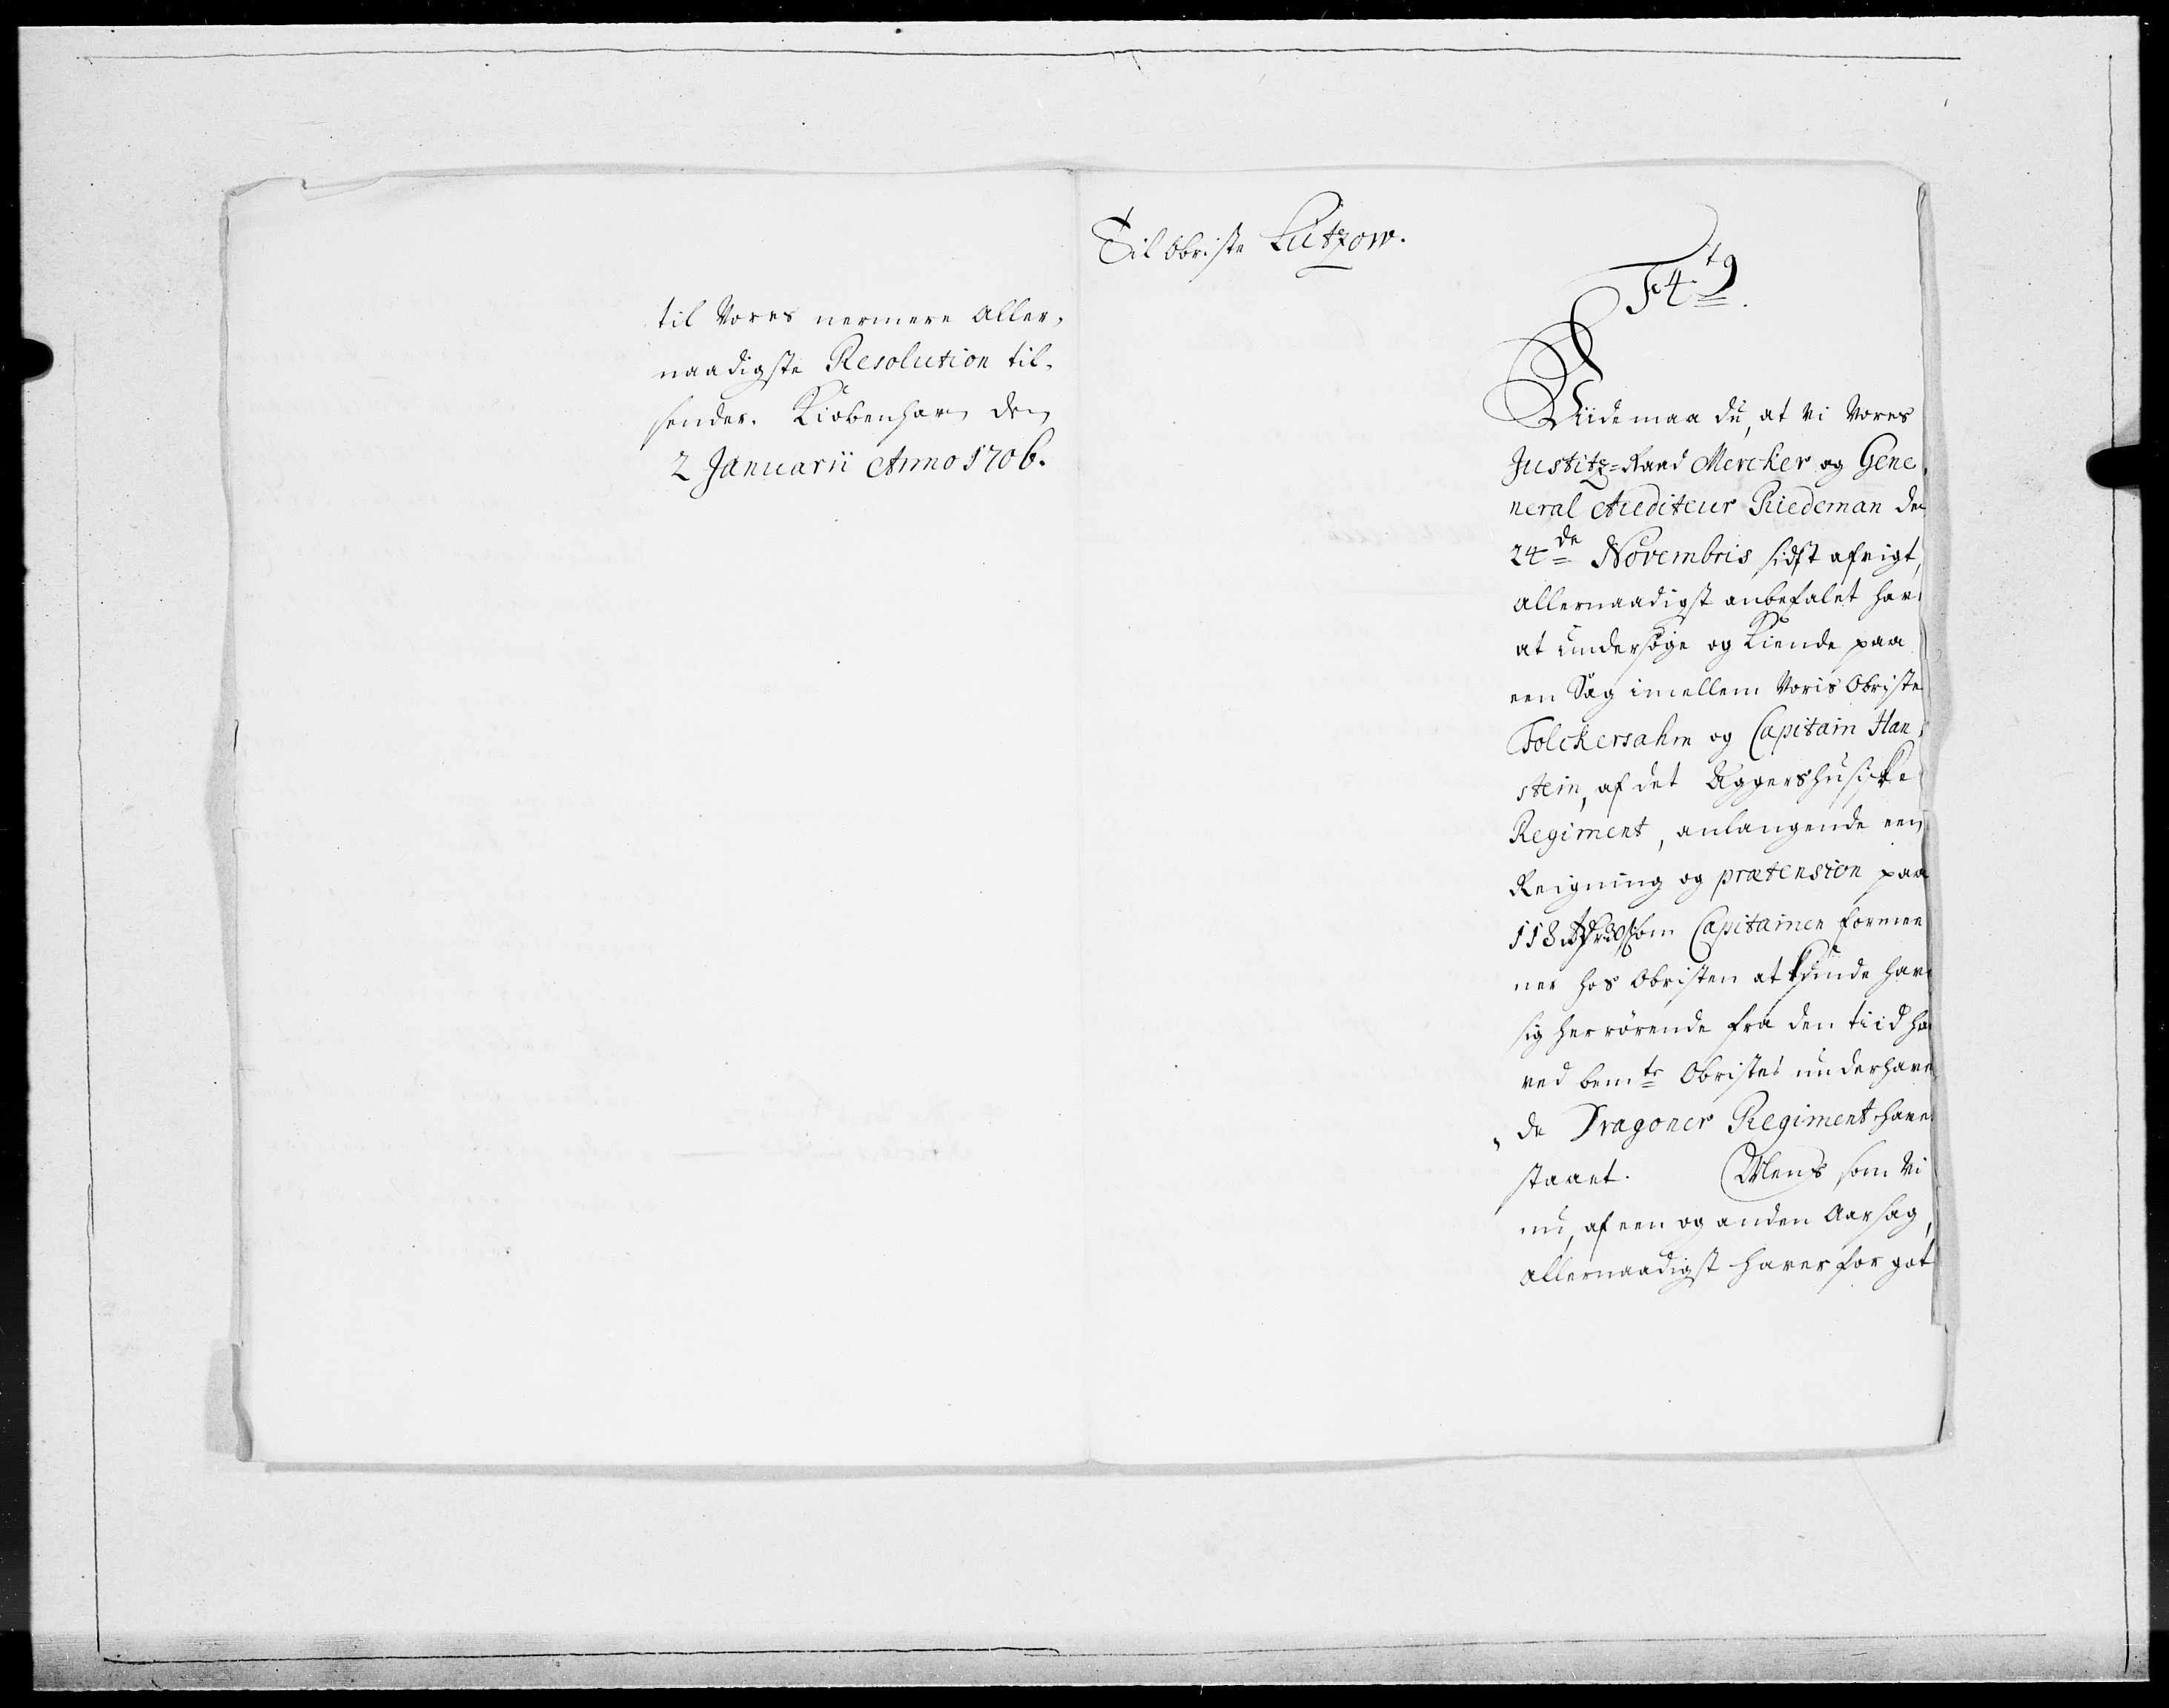 til Vores nermere Aller,
naadigste Resolution til,
sender. Kiøbenhavn den
2 Januarii Anno 1706.
Til Obriste Lützow.
F4.t9
Viide maa du, at Vi Vores
Justitz-Raad Mercker og Gene,
neral Auditeur Riedeman den
24de Novembris sidst afvigt,
Allernaadigst anbefalet hav
at undersøge og Kiende paa
een Sag imellem Voris Obriste
Folckersahm og Capitain Han,
stein, af det Aggershusiske
Regiment, anlangende een
Reigning og prætension paa
118 som Capitainen formee
ner hos Obristen at kunde hav
sig herrørende fra den tiid ha
ved bemte Obristes underhave
de Dragoner Regiment haver
staaet. Mens som Vi
nu, af een og anden Aarsag,
Allernaadigst haver for got